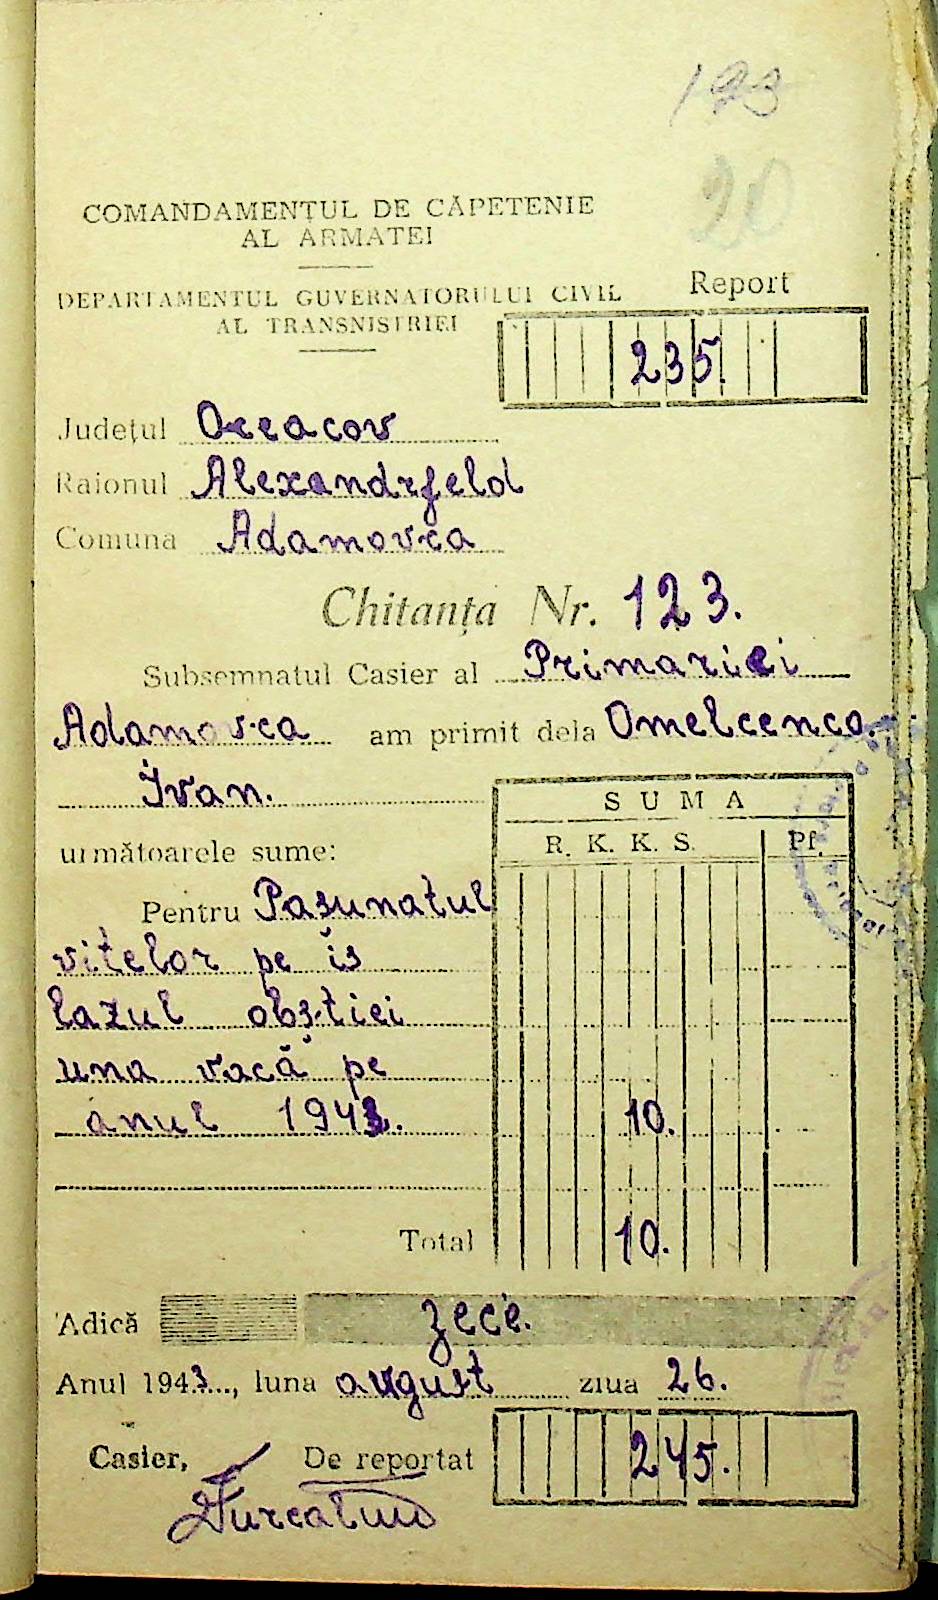 193
20
COMANDAMENTUL DE CĂPETENIE
AL ARMATEI
DEPARTAMENTUL GUVERNATORULUI CIVIL
AL TRANSNISTRIEI
Report
235.
Județul Oceacov
Raionul Alexandrfeld
Comuna Adamovca
Chitanța Nr. 123.
Subsemnatul Casier al Primariei
Adamovca am primit dela Omelcenco
Ivan.
următoarele sume:
SUMA
R. K. K. S. Pf.
Pentru Pasunatul
vitelor pe is
lazul obstiei
una vacă pe
anul 1943. 10.
Total 10.
Adică zece.
Anul 1943..., luna august ziua 26.
Casier, De reportat 245.